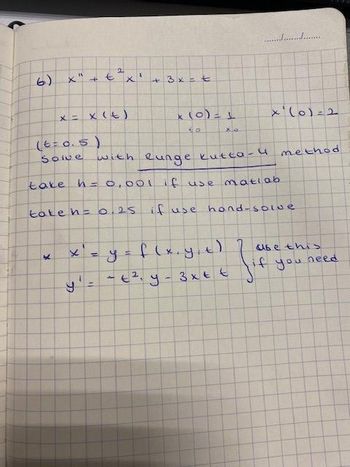 ....../....../......
6) x" + t² x' + 3x = t
x = x(t) x(0) = 1 x'(0) = 2
(t = 0.5)
Solve with Runge Kutta-4 method
take h = 0,001 if use matlab
take h = 0.25 if use hand-solve
* x' = y = f(x,y,t) } use this
y' = -t². y - 3x + t if you need